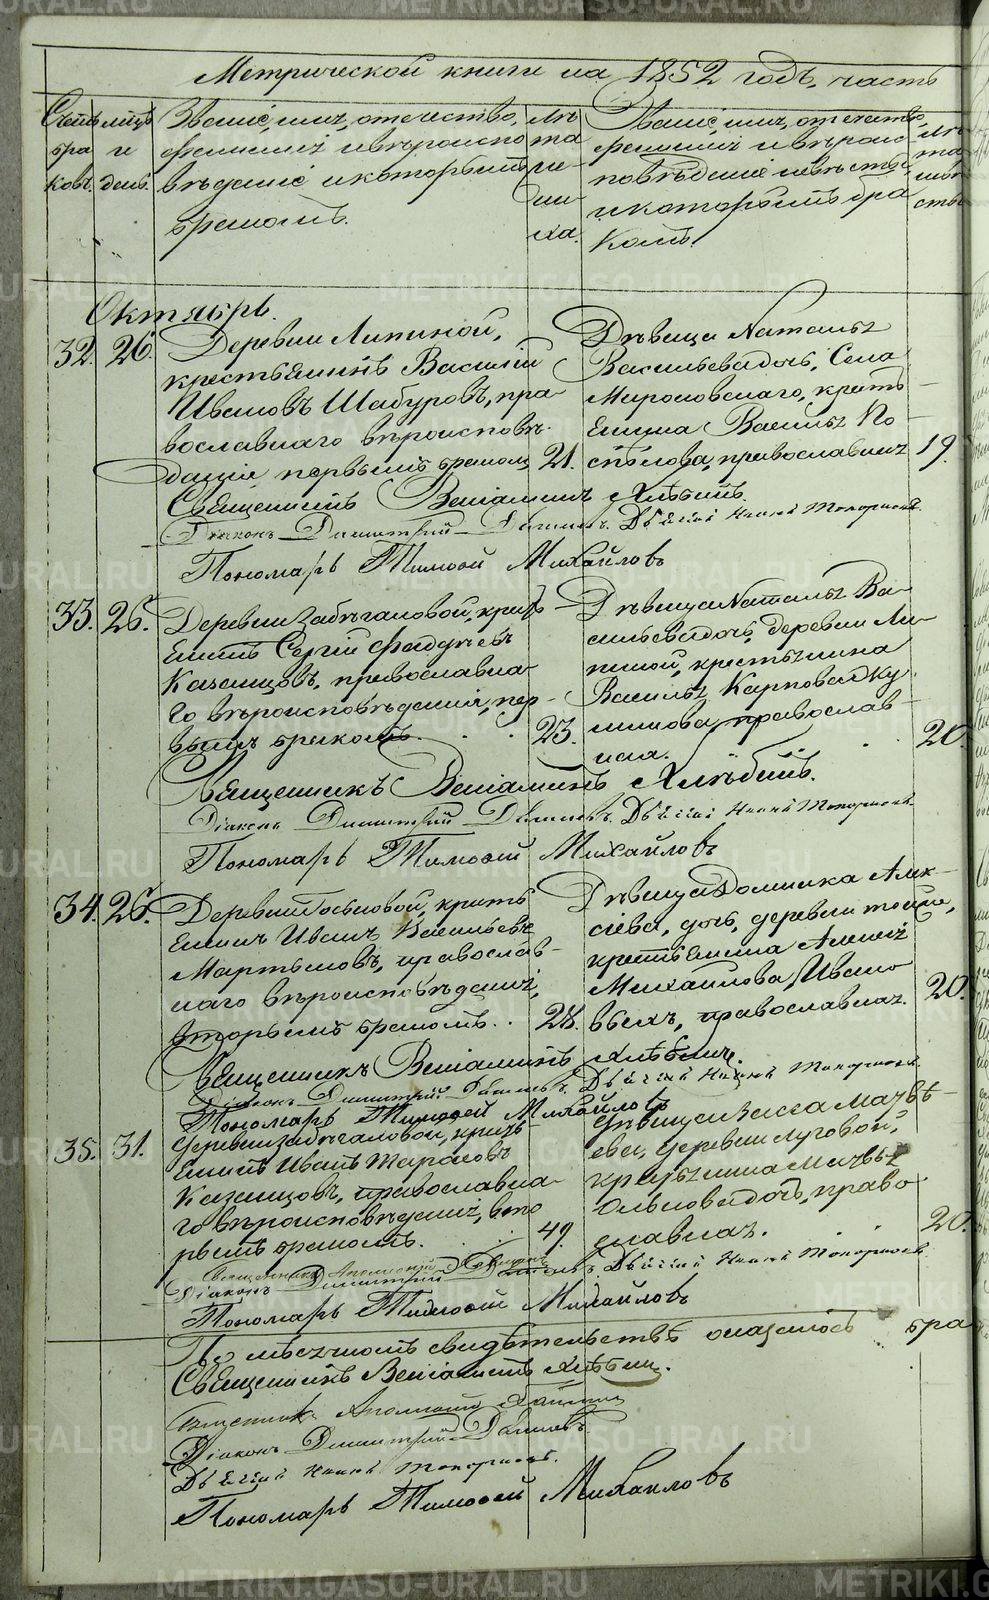 Метрической книги на 1852 годъ, часть
Счетъ бра ковъ.
мѣсць и день.
Званіе, имя, отечество,
фамилія и вѣроиспо
вѣданіе и которымъ
бракомъ.
лѣ та же ни ха.
Званіе, имя, отечество,
фамилія и вѣроис
повѣданіе невѣсты,
и которымъ бра
комъ.
лѣ та невѣ сты
Октябрь.
32. 26. Деревни Липиной,
крестьянинъ Василій
Ивановъ Шабуровъ, пра-
вославнаго вѣроисповѣ-
данія, первымъ бракомъ 21.
Дѣвица Наталья
Васильева дочь, Села
Мироновскаго, кресть-
янина Василья По
спѣлова, православная 19.
Священникъ Веніаминъ Хлѣбинъ.
Діаконъ Димитрій Дьячій Топорковъ.
Пономарь Тимофей Михайловъ
33. 26. Деревни Забѣгаловой, кресть-
янинъ Сергій Фаддѣевъ
Казанцовъ, православна-
го вѣроисповѣданія, пер-
вымъ бракомъ. 23.
Дѣвица Наталья Ва-
сильева дочь, деревни Ли-
пиной, крестьянина
Василья Карпова Ку-
ликова, православ-
ная. 20.
Священникъ Веніаминъ Хлѣбинъ.
Діаконъ Димитрій Дьячій Топорковъ.
Пономарь Тимофей Михайловъ
34. 26. Деревни кресть-
янинъ Иванъ Васильевъ
Мартьяновъ, православ-
наго вѣроисповѣданія,
вторымъ бракомъ. 28.
Дѣвица Домника Алек-
сіева, дочь, деревни тойже,
крестьянина Алексія
Михайлова Ивано
выхъ, православная. 20.
Священникъ Веніаминъ Хлѣбинъ.
Діаконъ Димитрій Дьячій Топорковъ.
Пономарь Тимофей Михайловъ
35. 31. Деревни Забѣгаловой, кресть-
янинъ Иванъ Тарасовъ
Казанцовъ, православна-
го вѣроисповѣданія, вто
рымъ бракомъ. 49.
Дѣвица Васса Матвѣ-
ева, деревни Луговой,
крестьянина Матвѣя
дочь, право
славная. 20.
Священникъ
Діаконъ Димитрій Дьячій Топорковъ.
Пономарь Тимофей Михайловъ
По мѣсячномъ свидѣтельствѣ оказалось бра
Священникъ Веніаминъ Хлѣбин.
Священникъ
Діаконъ Димитрій
Дьячій Топорковъ.
Пономарь Тимофей Михайловъ
METRIKI.GASO-URAL.RU